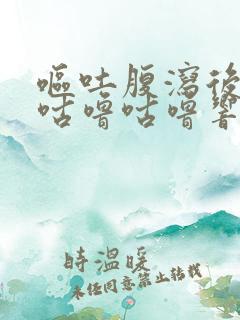 嘔吐腹瀉後
咕嚕咕嚕響
時溫暖
未经同意禁止转载